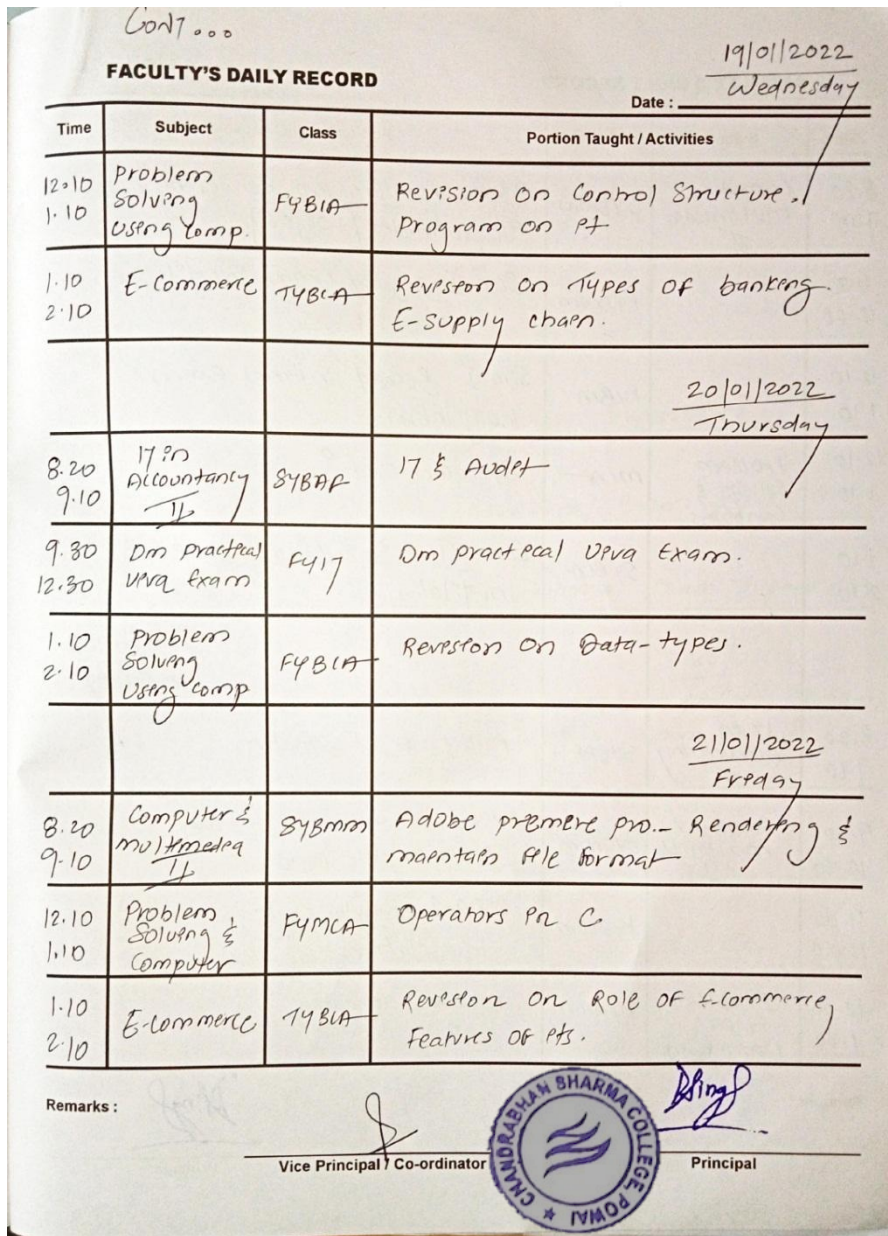 CONT...
19/01/2022
FACULTY'S DAILY RECORD
Date : Wednesday
Time Subject Class Portion Taught / Activities
12.10 1.10 Problem Solving Using Comp. FYBCA Revision on Control Structure.
Program on it
1.10 2.10 E-Commerce TYBCA Revision on Types of banking.
E-Supply chain.
20/01/2022
Thursday
8.20 9.10 IT in Accountancy II SYBAF IT & Audit
9.30 12.30 Dm practical viva Exam FYIT Dm practical Viva Exam.
1.10 2.10 Problem Solving Using comp FYBCA Revision on Data-types.
21/01/2022
Friday
8.20 9.10 Computer & multimedia II SYBMM Adobe premire pro.- Rendering &
maintain file format
12.10 1.10 Problem Solving & Computer FYMCA Operators in C.
1.10 2.10 E-Commerce TYBCA Revision on Role of E-Commerce,
Features of its.
Remarks :
Vice Principal / Co-ordinator
CHANDRABHAN SHARMA COLLEGE, POWAI
Principal